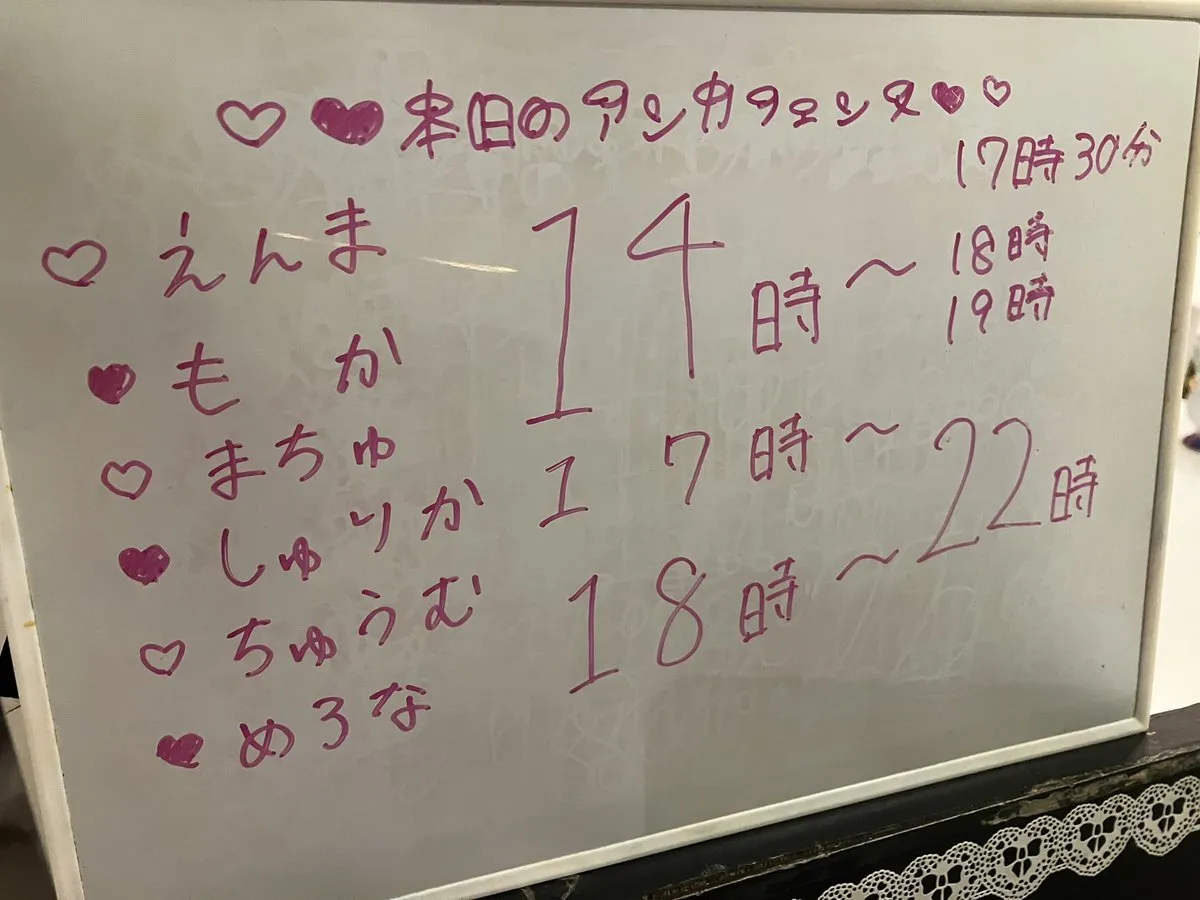 ♡♥本日のアンカフェンヌ♥♡
♡ えんま
♥ もか
♡ まちゅ
♥ しゅりか
♡ ちゅうむ
♥ めろな
14時～
17時30分
18時
19時
17時～
18時～
22時